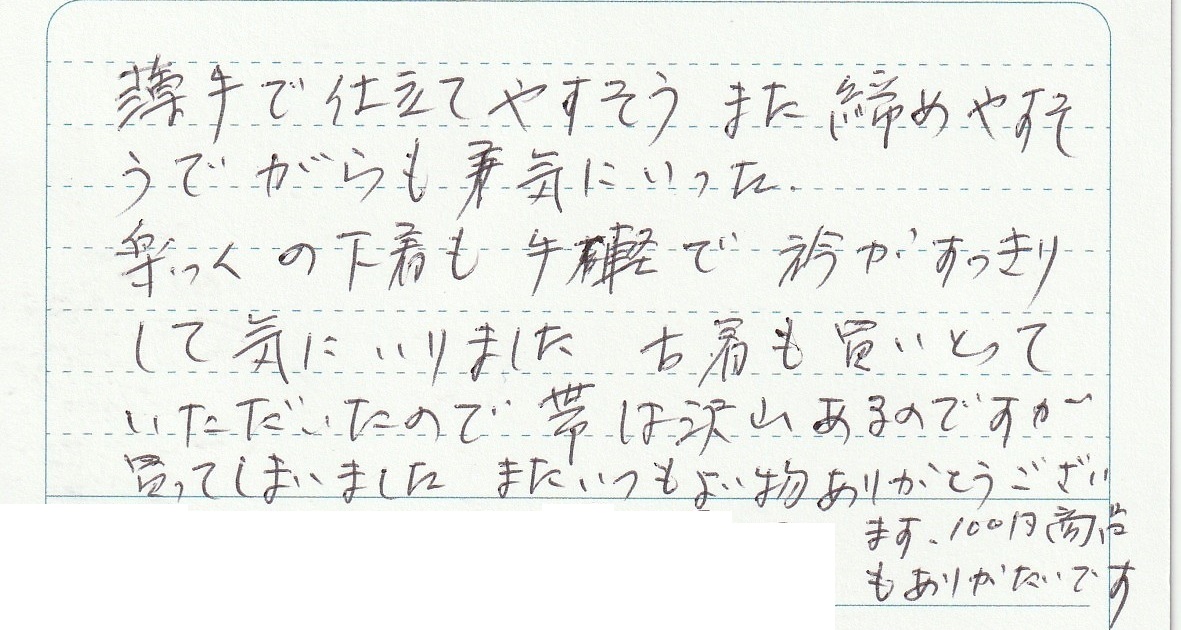 薄手で仕立てやすそう また 締めやすそ
うで がらも 気にいった.
楽っくの下着も 手軽で 衿がすっきり
して 気に いりました 古着も 買いとって
いただいたので 帯は沢山あるのですが
買ってしまいました またいつもよい物ありがとうござい
ます、100円商品
もありがたいです